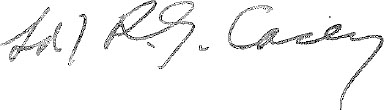 (sd) R.G. Casey